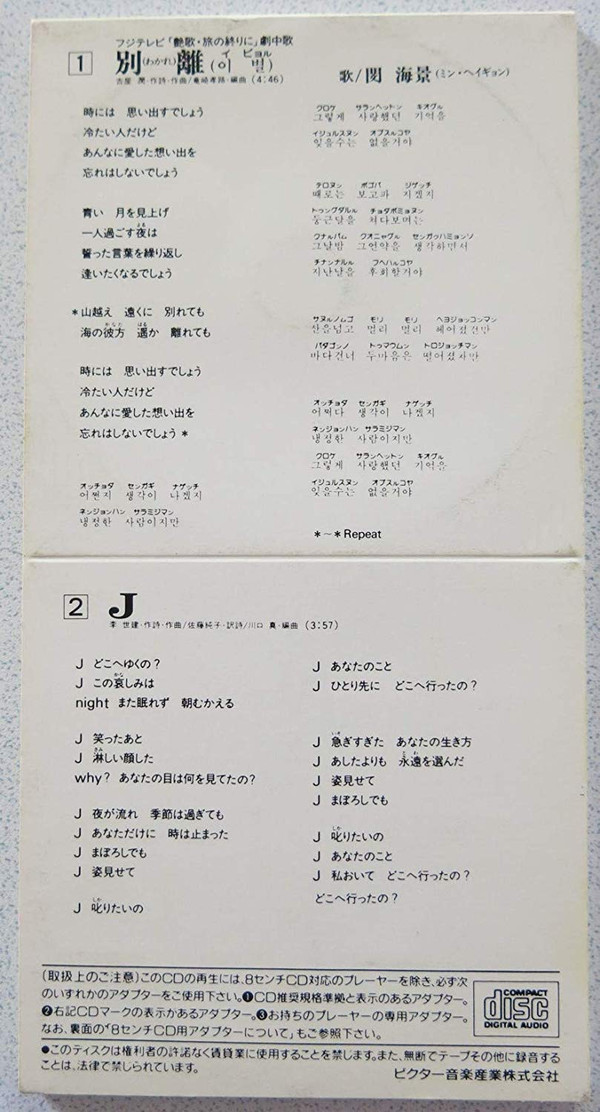 フジテレビ「艶歌・旅の終りに」劇中歌
1 別(わかれ)離(이 별)
イ ビョル
吉屋 潤・作詩・作曲/竜崎孝路・編曲(4:46)
歌/閔 海景(ミン・ヘイギョン)
時には 思い出すでしょう
冷たい人だけど
あんなに愛した想い出を
忘れはしないでしょう
青い 月を見上げ
一人過ごす夜は
誓った言葉を繰り返し
逢いたくなるでしょう
*山越え 遠くに 別れても
海の彼方 遥か 離れても
時には 思い出すでしょう
冷たい人だけど
あんなに愛した想い出を
忘れはしないでしょう*
オッチョダ センガギ ナゲッチ
어쩐지 생각이 나겠지
ネンジョンハン サラミジマン
냉정한 사람이지만
クロケ サランヘットン キオグル
그렇게 사랑했던 기억을
イジュルスヌン オプスルコヤ
잊을수는 없을거야
テロヌン ポゴパ ジゲッチ
때로는 보고파 지겠지
トゥングダルル チョダボミョヌン
둥근달을 쳐다보며는
クナルパム クオニャグル センガッハミョンソ
그날밤 그언약을 생각하면서
チナンナルル フヘハルコヤ
지난날을 후회할거야
サヌルノムゴ モリ モリ ヘヨジョッコンマン
산을넘고 멀리 멀리 헤어졌건만
パダゴンノ トゥマウムン トロジョッチマン
바다건너 두마음은 떨어졌지만
オッチョダ センガギ ナゲッチ
어쩌다 생각이 나겠지
ネンジョンハン サラミジマン
냉정한 사람이지만
クロケ サランヘットン キオグル
그렇게 사랑했던 기억을
イジュルスヌン オプスルコヤ
잊을수는 없을거야
*~*Repeat
2 J
李 世健・作詩・作曲/佐藤純子・訳詩/川口 真・編曲(3:57)
J どこへゆくの?
J この哀しみは
night また眠れず 朝むかえる
J 笑ったあと
J 淋しい顔した
why? あなたの目は何を見てたの?
J 夜が流れ 季節は過ぎても
J あなただけに 時は止まった
J まぼろしでも
J 姿見せて
J 叱りたいの
J あなたのこと
J ひとり先に どこへ行ったの?
J 急ぎすぎた あなたの生き方
J あしたよりも 永遠を選んだ
J 姿見せて
J まぼろしでも
J 叱りたいの
J あなたのこと
J 私おいて どこへ行ったの?
どこへ行ったの?
(取扱上のご注意)このCDの再生には、8センチCD対応のプレーヤーを除き、必ず次
のいずれかのアダプターをご使用下さい。❶CD推奨規格準拠と表示のあるアダプター。
❷右記CDマークの表示があるアダプター。❸お持ちのプレーヤーの専用アダプター。
なお、裏面の「8センチCD用アダプターについて」もご参照下さい。
COMPACT
disc
DIGITAL AUDIO
●このディスクは権利者の許諾なく賃貸業に使用することを禁じます。また、無断でテープその他に録音する
ことは、法律で禁じられています。
ビクター音楽産業株式会社